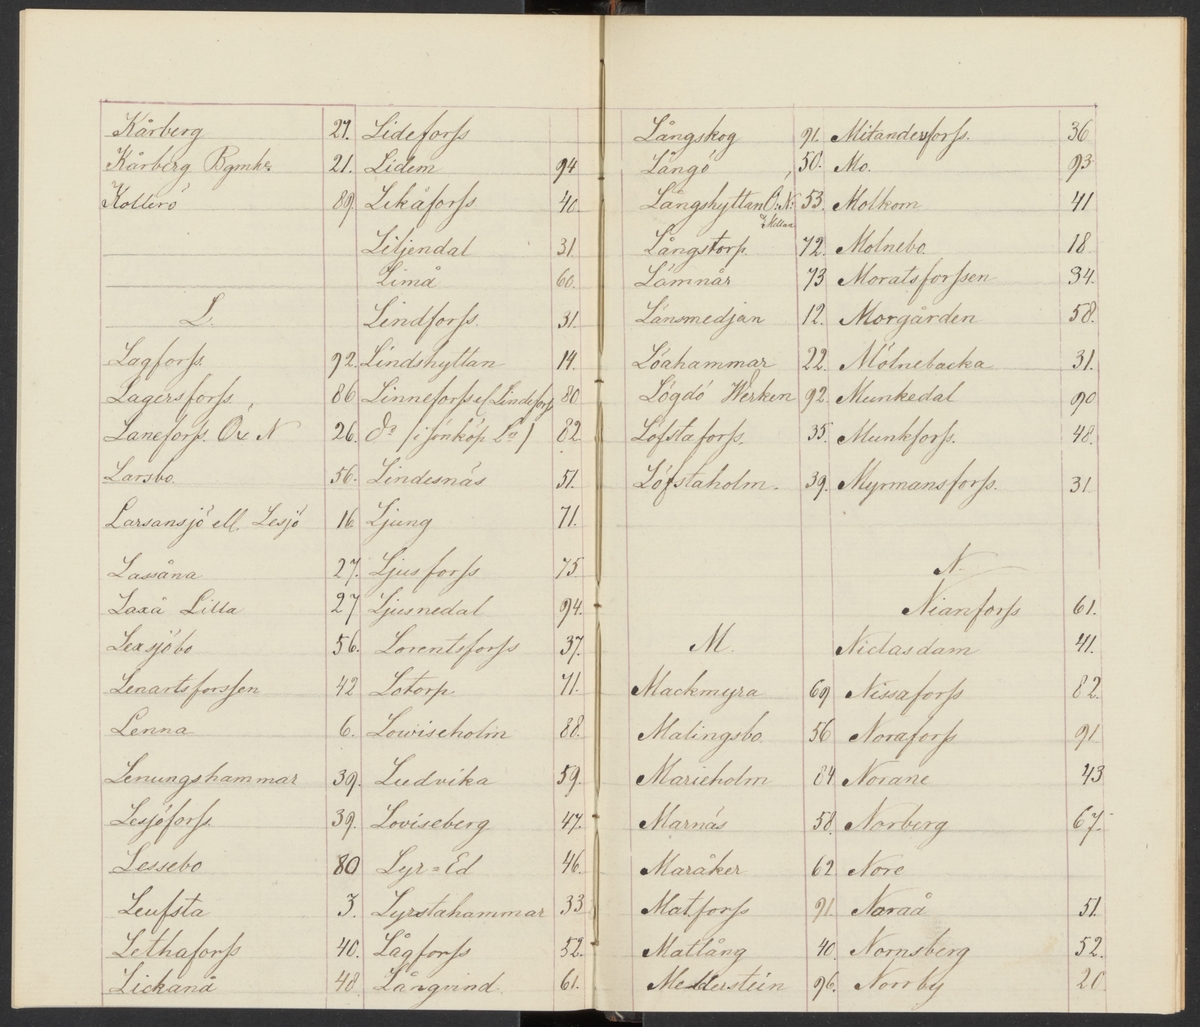 Kårberg 21.
Kårberg Bgmhr 21.
Kollerö 89.
L.
Lagforss. 92.
Lagersforss 86
Laneforss. Ö & N 26.
Larsbo 56.
Larsansjö ell. Lesjö 16
Lassåna 27.
Laxå Lilla 27
Lexsjöbo 56.
Lenartsforssen 42
Lenna 6.
Lenungshammar 39.
Lesjöforss 39.
Lessebo 80
Leufsta 3.
Lethaforss 40.
Lickanå 48.
Lideforss
Lidem 94
Likåforss 40.
Liljendal 31
Limå 60.
Lindforss. 31.
Lindshyttan 14.
Linneforss el Lindefors 80
do (i Jönköp. Ln) 82
Lindesnäs 51.
Ljung 71.
Ljusforss 75
Ljusnedal 94.
Lorentsforss 37.
Lotorp. 71.
Lowiseholm 88.
Ludvika 59.
Loviseberg 47.
Lyr=Ed 46.
Lyrstahammar 33
Lågforss 52.
Långvind 61.
Långskog 91.
Långö 50.
Långshyttan Ö. N. 53.
& Mellan
Långstorp. 72.
Lämnär 73
Länsmedjan 12.
Löahammar 22.
Lögdö Werken 92.
Löfstaforss. 35.
Löfstaholm. 39.
M.
Mackmyra 69
Malingsbo. 56
Marieholm 84
Marnäs 58.
Maråker 62
Matforss 91.
Matlång 40.
Melderstein 96.
Mitandersforss. 36
Mo. 93
Molkom 41
Molnebo 18
Moratsforssen 34.
Morgården 58.
Mölnebacka 31.
Munkedal 90
Munkforss. 48.
Myrmansforss. 31.
N.
Nianforss 61.
Niclasdam 41.
Nissaforss 82.
Noraforss 91
Norane 43
Norberg 67.
Nore
Noraå 51.
Nornsberg 52.
Norrby 20